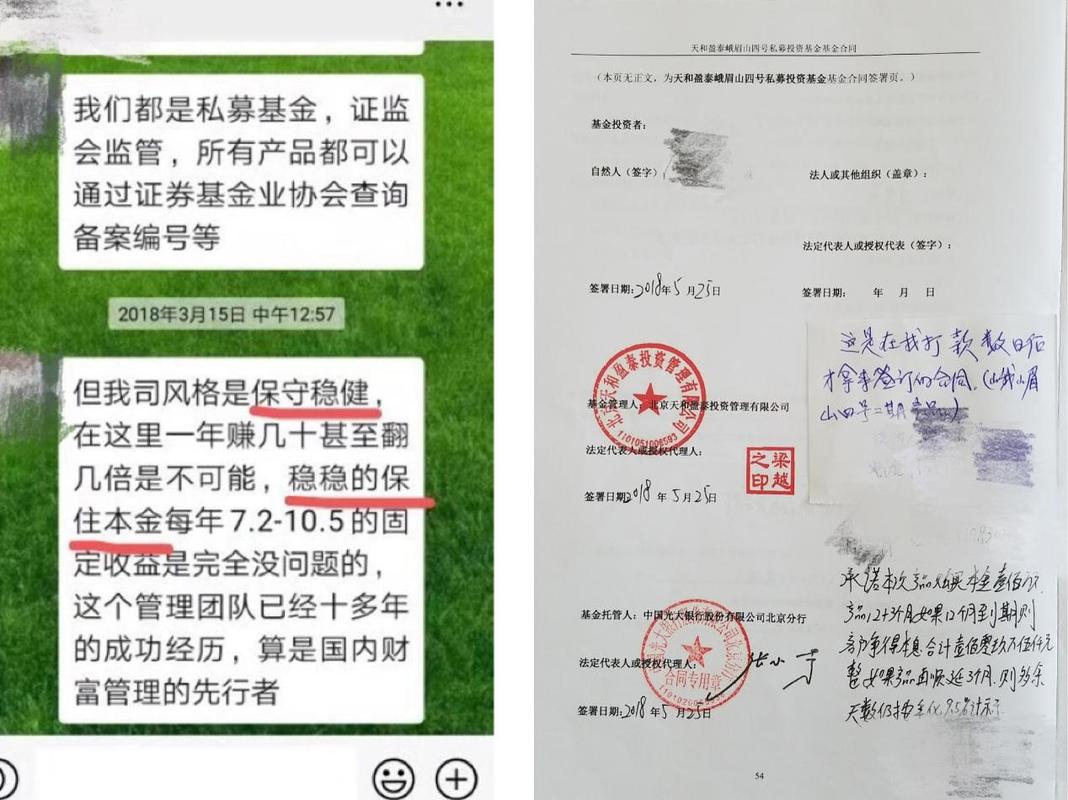 我们都是私募基金，证监
会监管，所有产品都可以
通过证券基金业协会查询
备案编号等
2018年3月15日 中午12:57
但我司风格是保守稳健，
在这里一年赚几十甚至翻
几倍是不可能，稳稳的保
住本金每年7.2-10.5的固
定收益是完全没问题的，
这个管理团队已经十多年
的成功经历，算是国内财
富管理的先行者
天和盈泰峨眉山四号私募投资基金基金合同
（本页无正文，为天和盈泰峨眉山四号私募投资基金基金合同签署页。）
基金投资者：
自然人（签字）
法人或其他组织（盖章）：
法定代表人或授权代表（签字）：
签署日期：2018年5月25日
签署日期： 年 月 日
这是在我打款数日后
才拿来签订的合同。
山四号二期产品）
北京天和盈泰投资管理有限公司
基金管理人：北京天和盈泰投资管理有限公司
1101051006593
法定代表人或授权代理人：
梁越之印
签署日期2018年5月25日
承诺本次产品如果本金壹佰万
产品12+3个月如果12个月到期则
客户净得本息合计壹佰零玖万伍仟元
整如果产品再顺延3个月.则多余
天数仍按年化9.5%计示
基金托管人：中国光大银行股份有限公司北京分行
合同专用章
法定代表人或授权代理人：
签署日期：2018年5月25日
54